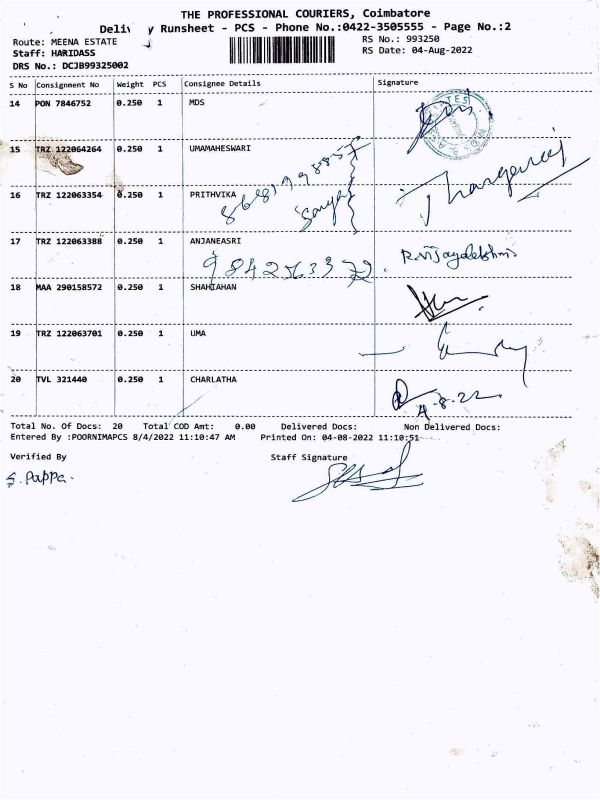 THE PROFESSIONAL COURIERS, Coimbatore
Deliv y Runsheet - PCS - Phone No.:0422-3505555 - Page No.:2
Route: MEENA ESTATE RS No.: 993250
Staff: HARIDASS RS Date: 04-Aug-2022
DRS No.: DCJB99325002
S No Consignment No Weight PCS Consignee Details Signature
14 PON 7846752 0.250 1 MDS
15 TRZ 122064264 0.250 1 UMAMAHESWARI
16 TRZ 122063354 0.250 1 PRITHVIKA Thangaraj
17 TRZ 122063388 0.250 1 ANJANEASRI
9842563372. R.Vijayalakshmi
18 MAA 290158572 0.250 1 SHAHJAHAN
19 TRZ 122063701 0.250 1 UMA
20 TVL 321440 0.250 1 CHARLATHA
4-8-22
Total No. Of Docs: 20 Total COD Amt: 0.00 Delivered Docs: Non Delivered Docs:
Entered By :POORNIMAPCS 8/4/2022 11:10:47 AM Printed On: 04-08-2022 11:10:51
Verified By Staff Signature
S. Pappa.